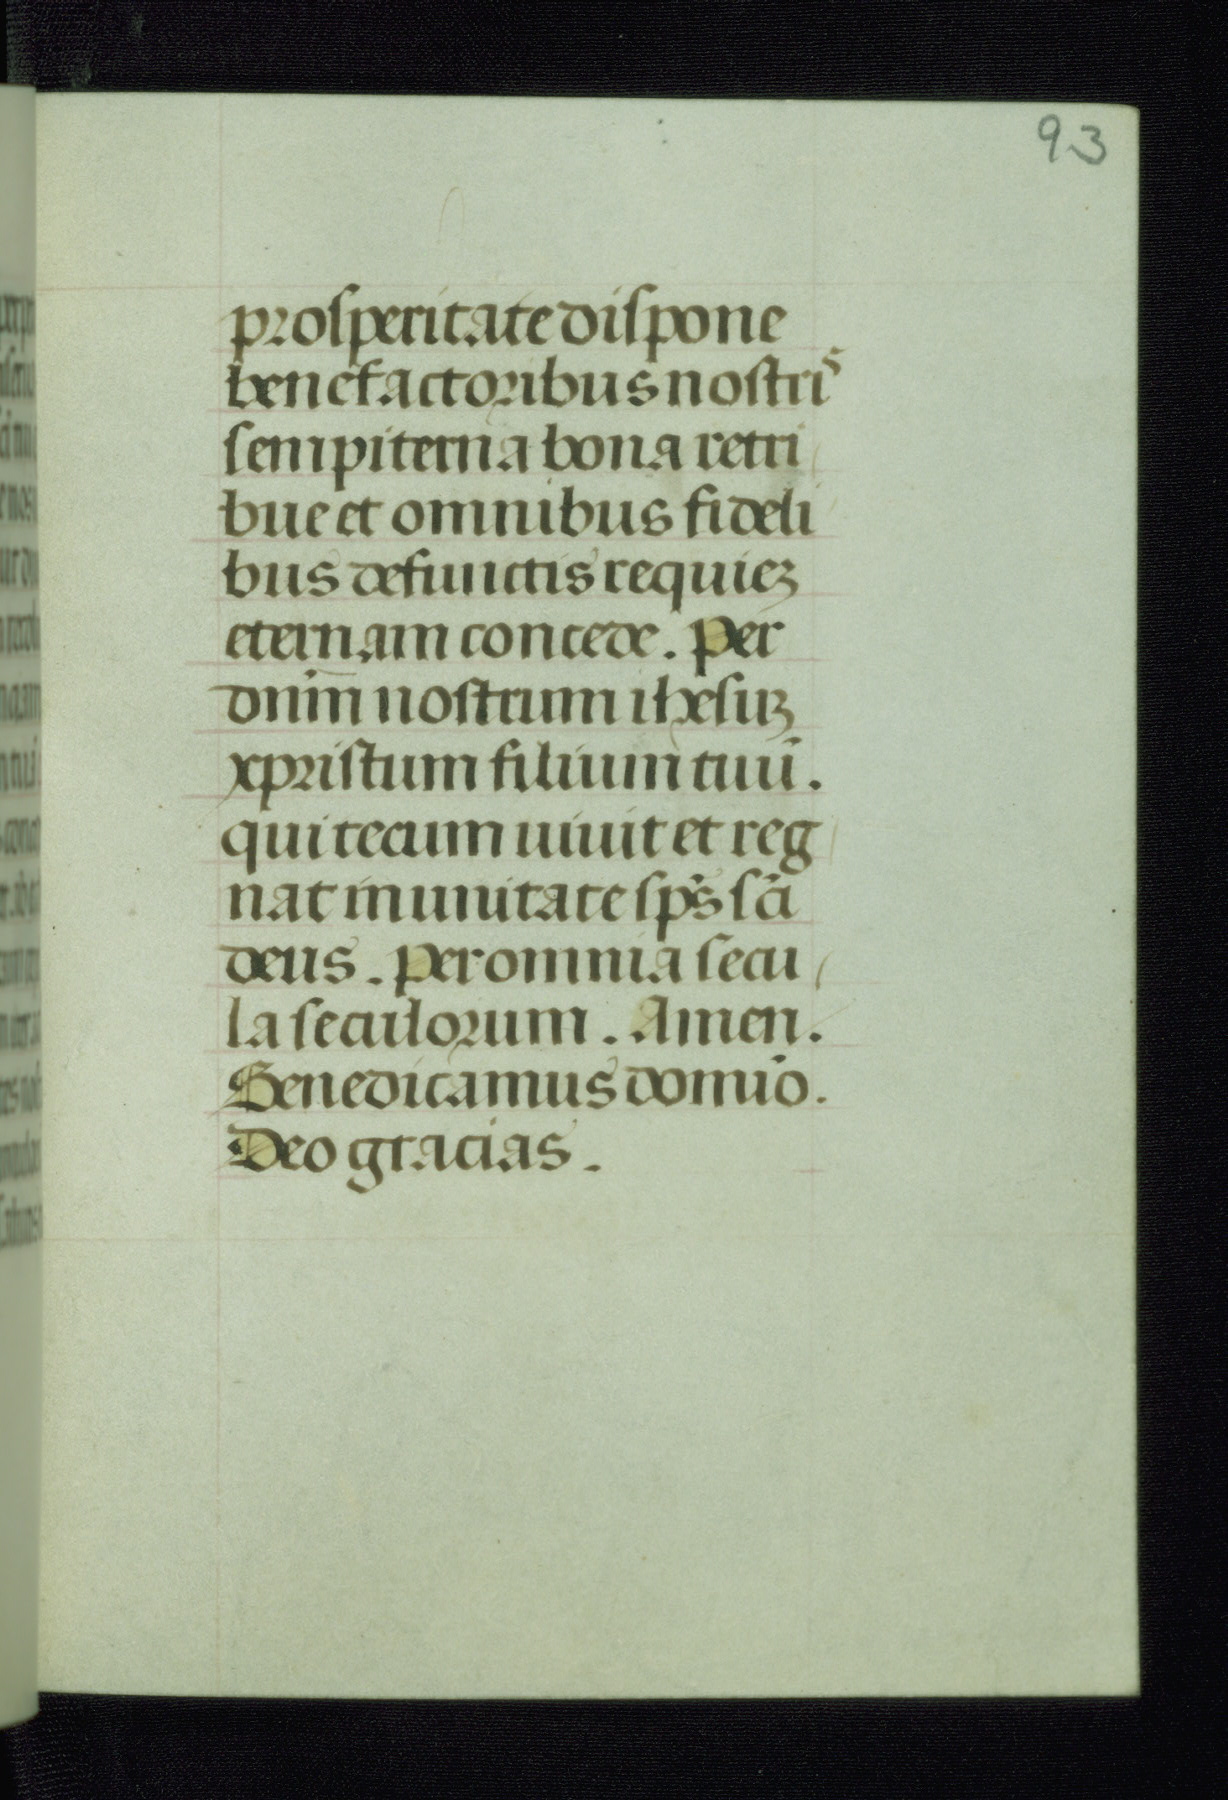 93
prosperitate dispone
benefactoribus nostris
sempiterna bona retri
bue et omnibus fideli
bus defunctis requiez
eternam concede. Per
dnm̄ nostrum ihesuz
xpristum filium tuū.
qui tecum uiuit et reg
nat in unitate sp̄s sc̄i
deus. Per omnia secu
la seculorum. Amen.
Benedicamus domīo.
Deo gracias.